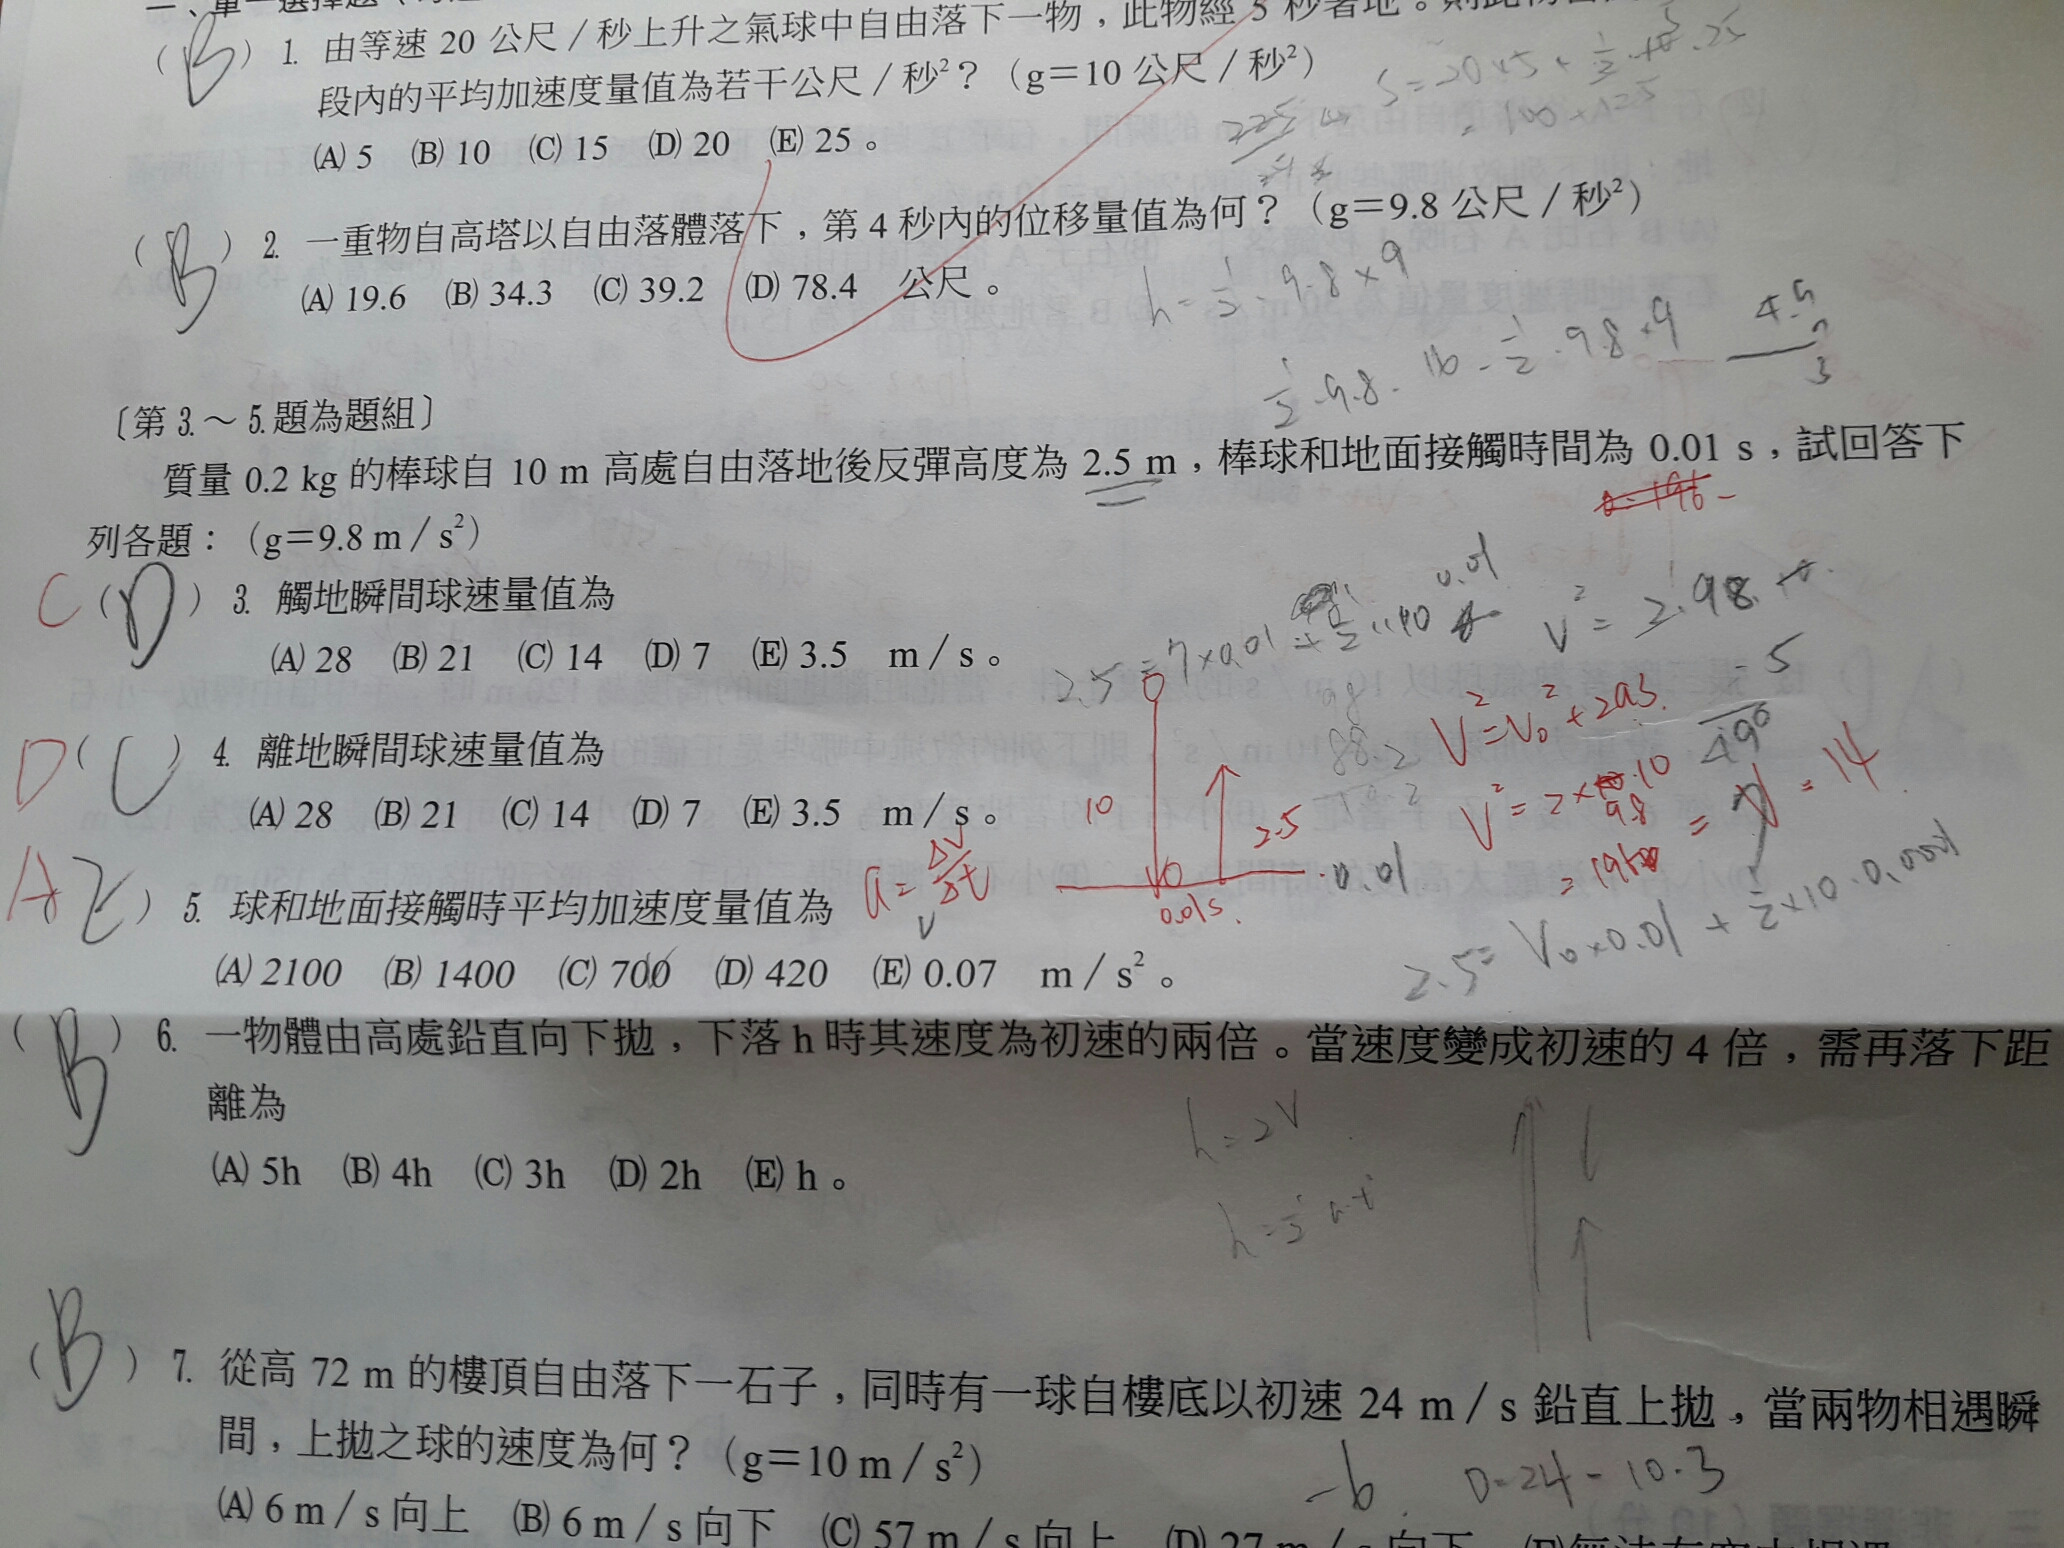 一、單一選擇題
(B) 1. 由等速 20 公尺/秒上升之氣球中自由落下一物，此物經 5 秒著地。則此物
段內的平均加速度量值為若干公尺/秒²？（g＝10 公尺/秒²）
(A) 5 (B) 10 (C) 15 (D) 20 (E) 25。
(B) 2. 一重物自高塔以自由落體落下，第 4 秒內的位移量值為何？（g＝9.8 公尺/秒²）
(A) 19.6 (B) 34.3 (C) 39.2 (D) 78.4 公尺。
h = 1/2 · 9.8 × 9
1/2 · 9.8 · 16 - 1/2 · 9.8 · 9
〔第 3.～5.題為題組〕
質量 0.2 kg 的棒球自 10 m 高處自由落地後反彈高度為 2.5 m，棒球和地面接觸時間為 0.01 s，試回答下
列各題：（g＝9.8 m/s²）
C (D) 3. 觸地瞬間球速量值為
(A) 28 (B) 21 (C) 14 (D) 7 (E) 3.5 m/s。
V² = V₀² + 2as
D (C) 4. 離地瞬間球速量值為
(A) 28 (B) 21 (C) 14 (D) 7 (E) 3.5 m/s。
10
2.5
0.01
0.01s.
= 14
A (E) 5. 球和地面接觸時平均加速度量值為
a = ΔV/Δt
(A) 2100 (B) 1400 (C) 700 (D) 420 (E) 0.07 m/s²。
2.5 = V₀ × 0.01 + 1/2 × 10 · 0.0001
(B) 6. 一物體由高處鉛直向下拋，下落 h 時其速度為初速的兩倍。當速度變成初速的 4 倍，需再落下距
離為
h = 2V
(A) 5h (B) 4h (C) 3h (D) 2h (E) h。
(B) 7. 從高 72 m 的樓頂自由落下一石子，同時有一球自樓底以初速 24 m/s 鉛直上拋，當兩物相遇瞬
間，上拋之球的速度為何？（g＝10 m/s²）
-6 0=24-10·3
(A) 6 m/s 向上 (B) 6 m/s 向下 (C) 57 m/s 向上 (D) 27 m/s 向下